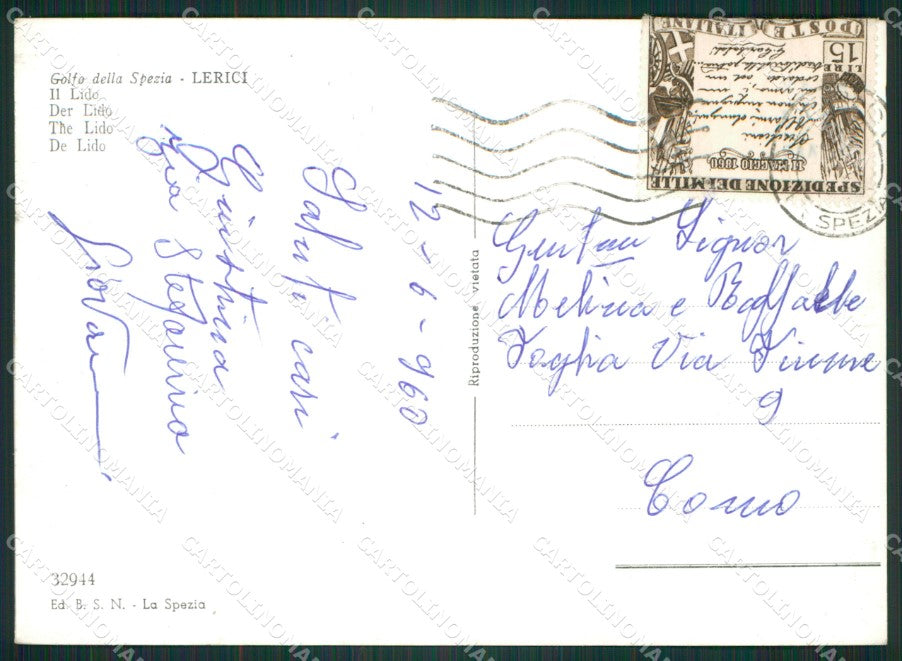 Golfo della Spezia - LERICI
Il Lido
Der Lido
The Lido
De Lido
12-6-960
Saluti cari
Giustina
Stefanino
Riproduzione vietata
POSTE ITALIANE
LIRE 15
II MAGGIO 1860
SPEDIZIONE DEI MILLE
SPEZIA
Signor
Melina e Raffaele
Foglia Via Fiume
9
Como
32944
Ed. B. S. N. - La Spezia
CARTOLINOMANIA